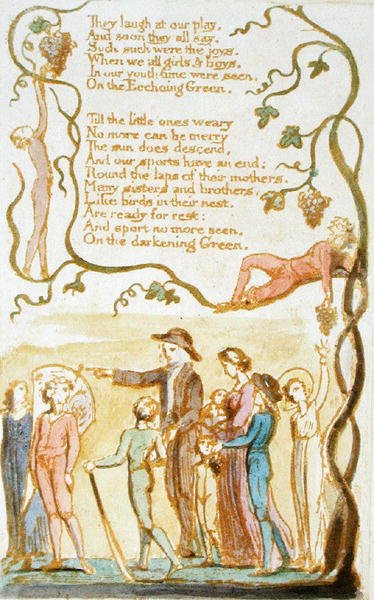 They laugh at our play,
And soon they all say.
Such such were the joys.
When we all girls & boys,
In our youth-time were seen,
On the Ecchoing Green.
Till the little ones weary
No more can be merry
The sun does descend,
And our sports have an end:
Round the laps of their mothers,
Many sisters and brothers,
Like birds in their nest,
Are ready for rest:
And sport no more seen,
On the darkening Green.